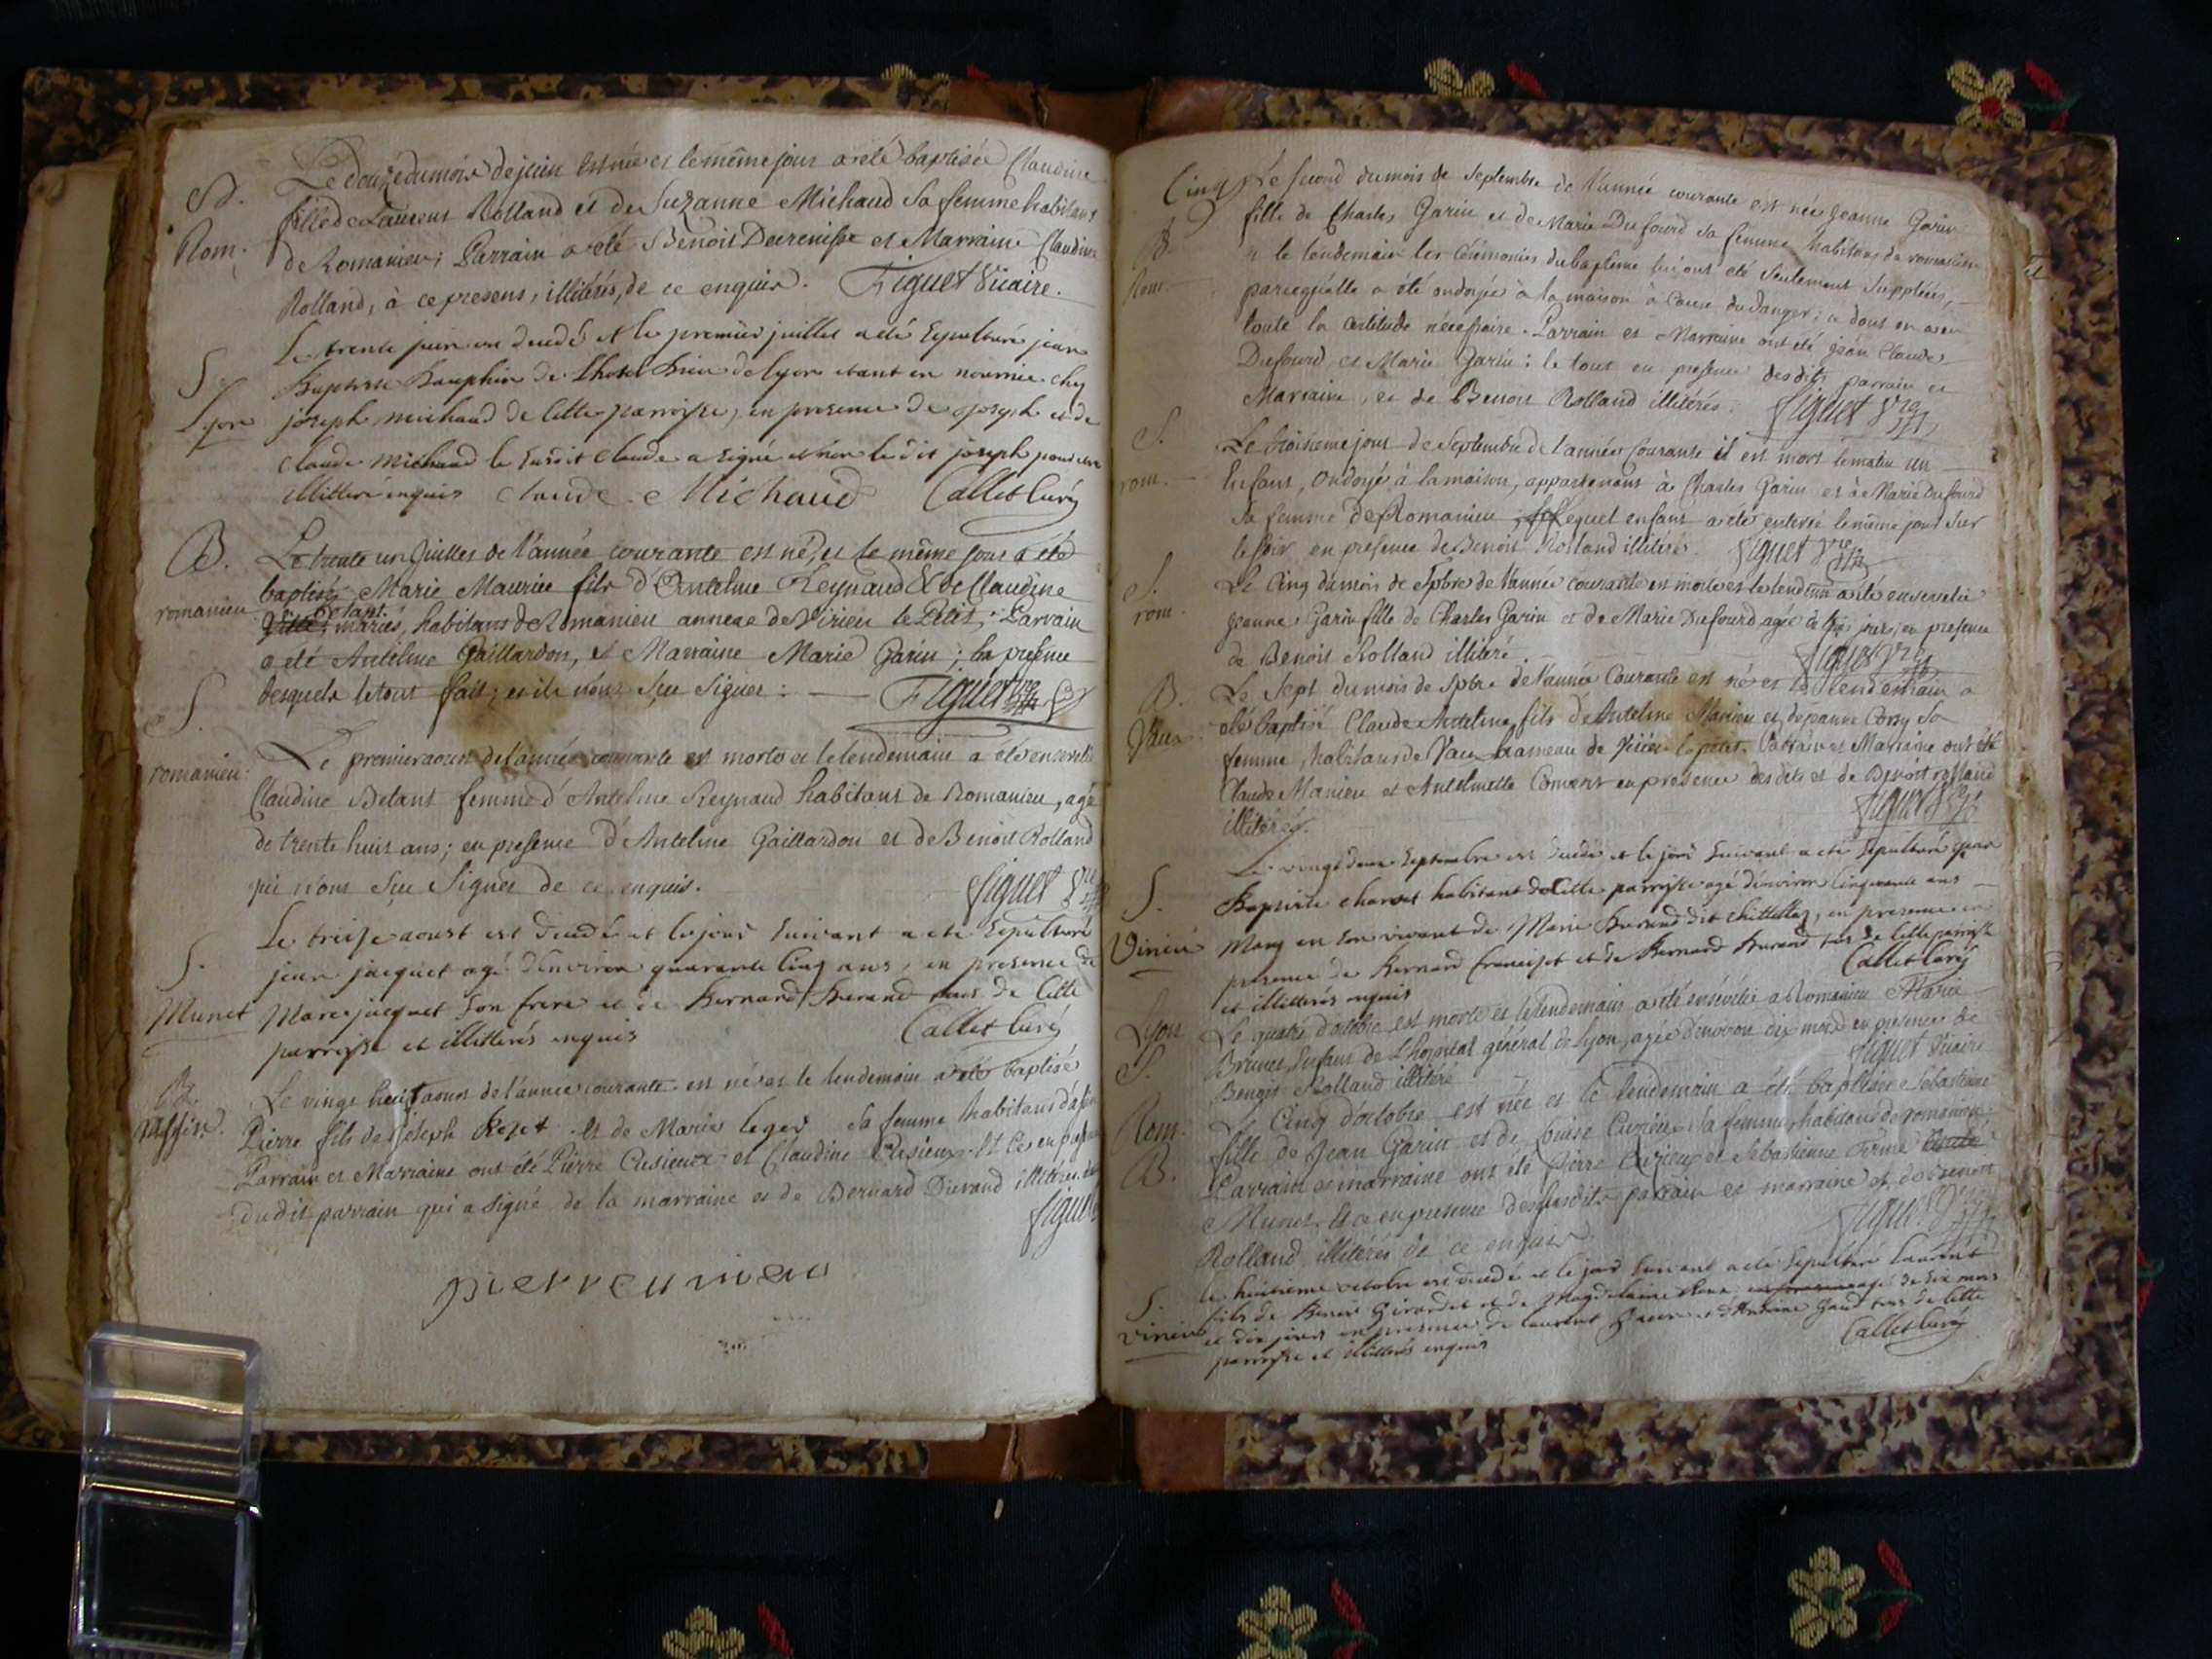 B.
Le douze du mois de juin est née et le même jour a été baptisée Claudine
Rom.
fille de Laurent Rolland et de Suzanne Michaud sa femme habitans
de Romanieu; Parrain a été Benoit et Marraine Claudine
Rolland, à ce presens, illitérés, de ce enquis. Figuet Vicaire.
Le trente juin est decedé et le premier juillet a été sepulturé jean
S
Baptiste Dauphin de Lhotel Dieu de lyon etant en nourrice chez
Lyon
joseph michaud de cette parroisse, en presence de joseph et de
claude michaud le susdit claude a signé et non le dit joseph pour etre
illitteré enquis claude Michaud Callet Curé
B.
Le trente un Juillet de l'année courante est né, et le même jour a été
baptisé Marie Maurice fils d'Antelme Reynaud & de Claudine
romanieu
Betant
mariés, habitans de Romanieu annexe de Virieu le Petit; Parrain
a été Antelme Gaillardon, et Marraine Marie Garin; en presence
desquels le tout fait; et ils n'ont sçu signer: Figuet Vre
S.
romanieu:
Le premier aoust de l'année courante est morte et le lendemain a été ensevelie
Claudine Betant femme d'Antelme Reynaud habitans de Romanieu, agée
de trente huit ans; en presence d'Antelme Gaillardon et de Benoit Rolland
qui n'ont sçu signer de ce enquis. Figuet Vre
Le treise aoust est decedé et le jour suivant a eté sepulturé
S.
jean jacquet agé d'environ quarante cinq ans, en presence de
Munet
Marc jacquet son frere et de Bernard Durand tous de cette
parroisse et illitterés enquis Callet Curé
B.
Le vingt huit aoust de l'année courante est né et le lendemain a été baptisé
Pierre fils de Joseph et de Marie leger sa femme habitans
Parrain et Marraine ont été Pierre Cusieux et Claudine Cusieux. Et ce en presence
dudit parrain qui a signé de la marraine et de Bernard Durand
Figuet
Cinq
Le second du mois de Septembre de l'année courante est née Jeanne Garin
B.
fille de Charles Garin et de Marie Dufourd sa femme habitans de romanieu
Rom.
le lendemain les cérémonies du baptême lui ont été seulement supplées,
parcequ'elle a été ondoyée à la maison à cause du danger; ce dont on a eu
toute la certitude nécessaire. Parrain et Marraine ont été jean Claude
Dufourd et Marie Garin: le tout en presence desdits parrain et
Marraine, et de Benoit Rolland illitérés. Figuet Vre
S.
Le troisieme jour de Septembre de l'année Courante il est mort le matin un
rom.
Enfant, ondoyé à la maison, appartenant à Charles Garin et à Marie Dufourd
sa femme de Romanieu; lequel enfant a été enterré le même jour sur
le soir en presence de Benoit Rolland illitéré. Figuet Vre
S.
Le Cinq du mois de 7bre de l'année courante est morte et le lendemain a été ensevelie
rom.
Jeanne Garin fille de Charles Garin et de Marie Dufourd agée de trois jours, en presence
de Benoit Rolland illitéré. Figuet Vre
B.
Le sept du mois de 7bre de l'année courante est né et le lendemain a
Vaux.
été baptisé Claude Antelme, fils d'Antelme Manieu et de jeanne sa
femme, habitans de Vaux hameau de Virieu le petit. Parrain et Marraine ont été
Claude Manieu et Antelmette en presence des dits et de Benoit rolland
illitérés. Figuet Vre
Le vingt deux Septembre est decedé et le jour suivant a eté sepulturé jean
S.
Baptiste charvet habitant de cette parroisse agé d'environ cinquante ans
Virieu
mary en son vivant de Marie Durand dit en presence
presence de Bernard et de Bernard Durand tous de cette parroisse
et illitterés enquis Callet Curé
Lyon
Le quatre d'octobre est morte et le lendemain a été ensévélie a Romanieu Marie
S.
Brunet, Enfant de L'hopital général de Lyon, agée d'environ dix mois en presence de
Benoit Rolland illitéré Figuet Vicaire
Rom.
Le Cinq d'octobre est née et le lendemain a été baptisée Sébastienne
fille de Jean Garin et de Louise sa femme, habitans de romanieu:
B.
Parrain et marraine ont été Pierre et Sebastienne
Munet. Et ce en presence desdits parrain et marraine et de Benoit
Rolland illitérés de ce enquis. Figuet Vre
S.
le huitieme octobre est decedé et le jour suivant a eté sepulturé laurent
fils de Benoit Girardet et de Magdelaine agé de six mois
virieu
et dix jours en presence de laurent et d'Antoine tous de cette
parroisse et illitterés enquis Callet Curé